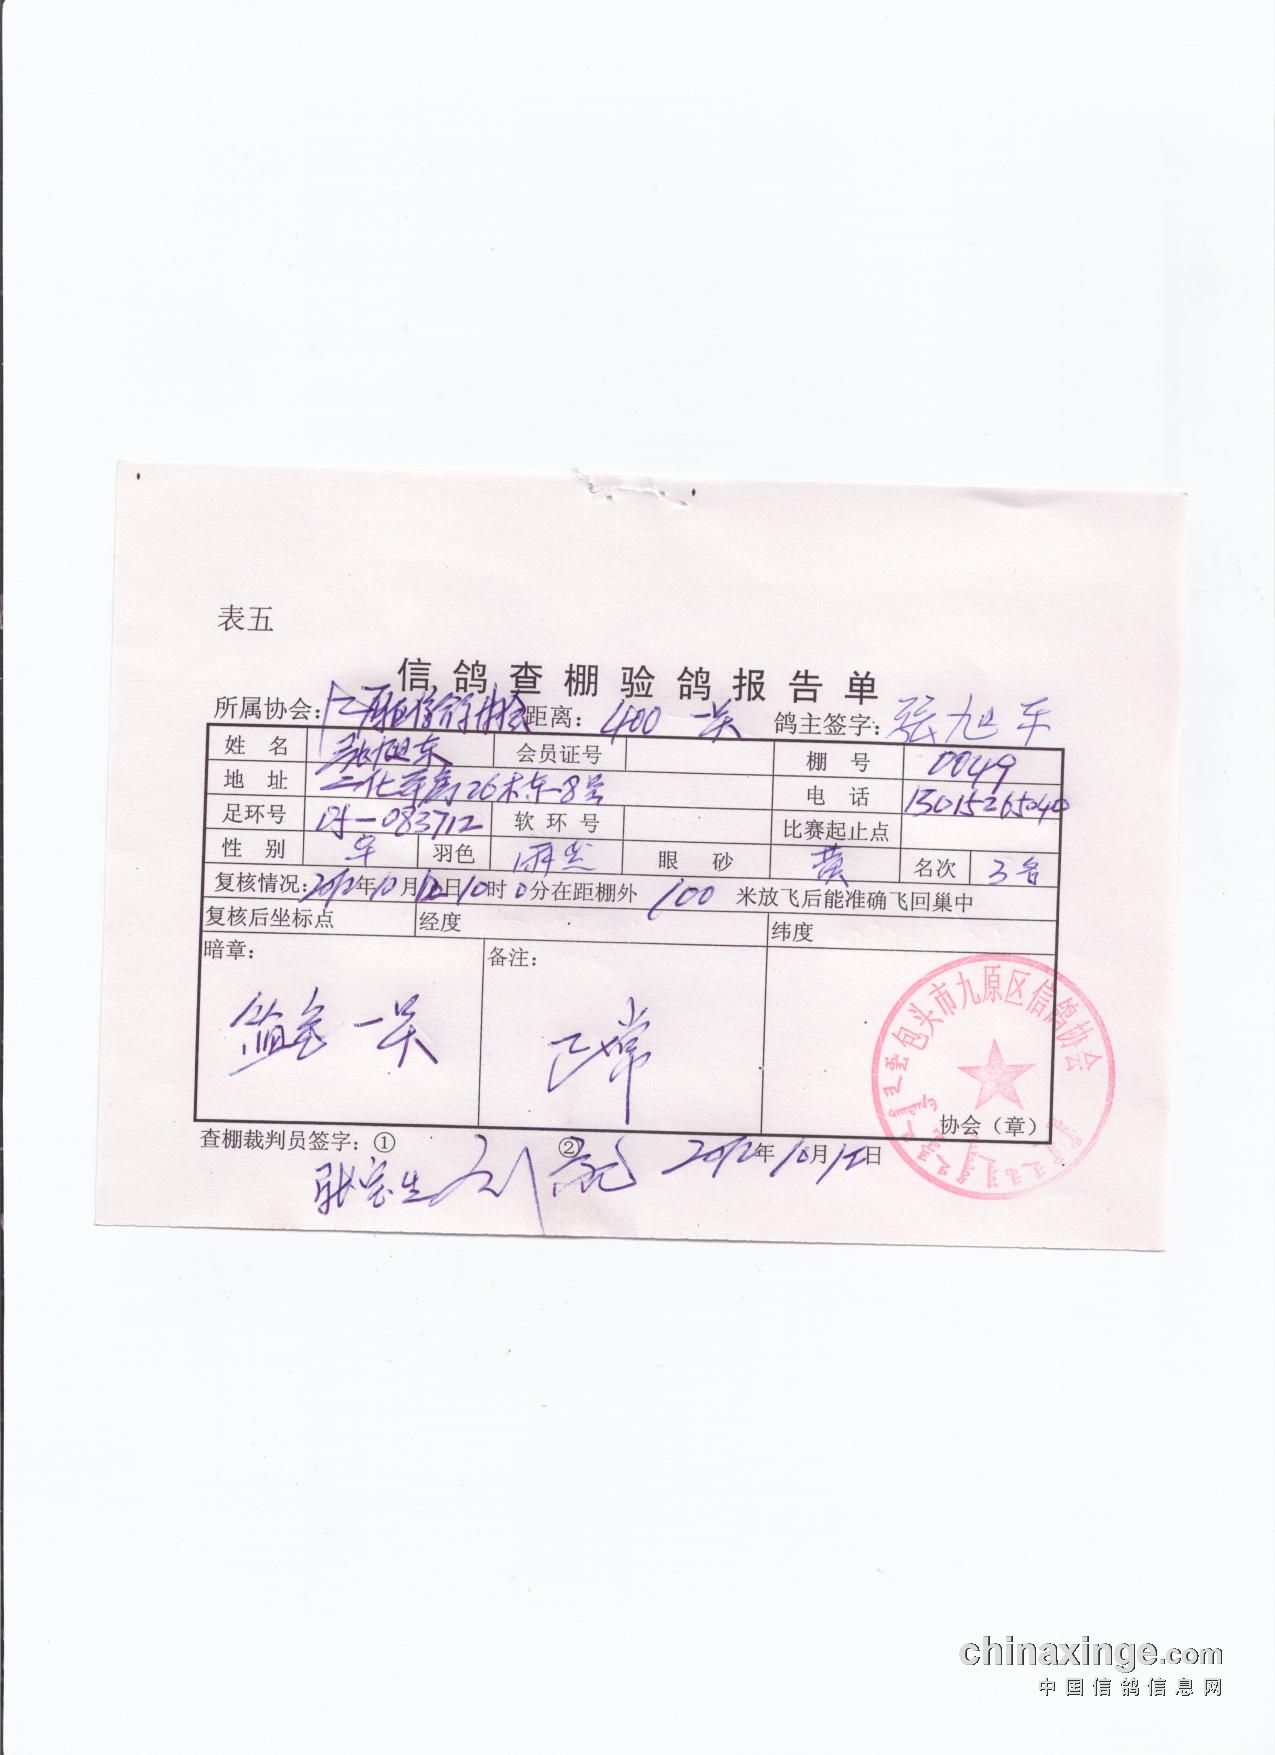 表五
信鸽查棚验鸽报告单
所属协会： 信鸽协会 距离： 400 一关 鸽主签字： 张旭东
姓名 张旭东 会员证号 棚号 0049
地址 26栋-8号 电话 13015265040
足环号 05-083712 软环号 比赛起止点
性别 羽色 眼砂 黄 名次 3名
复核情况：2012年10月12日10时0分在距棚外 100 米放飞后能准确飞回巢中
复核后坐标点 经度 纬度
暗章： 一关 备注： 正常
包头市九原区信鸽协会
协会（章）
查棚裁判员签字：① ② 2012年10月12日
张宝生
chinaxinge.com
中国信鸽信息网